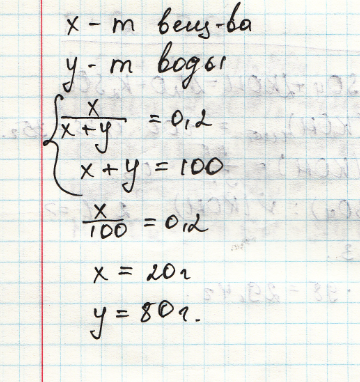 x - m вещ-ва
y - m воды
x/(x+y) = 0,2
x + y = 100
x/100 = 0,2
x = 20г
y = 80г.